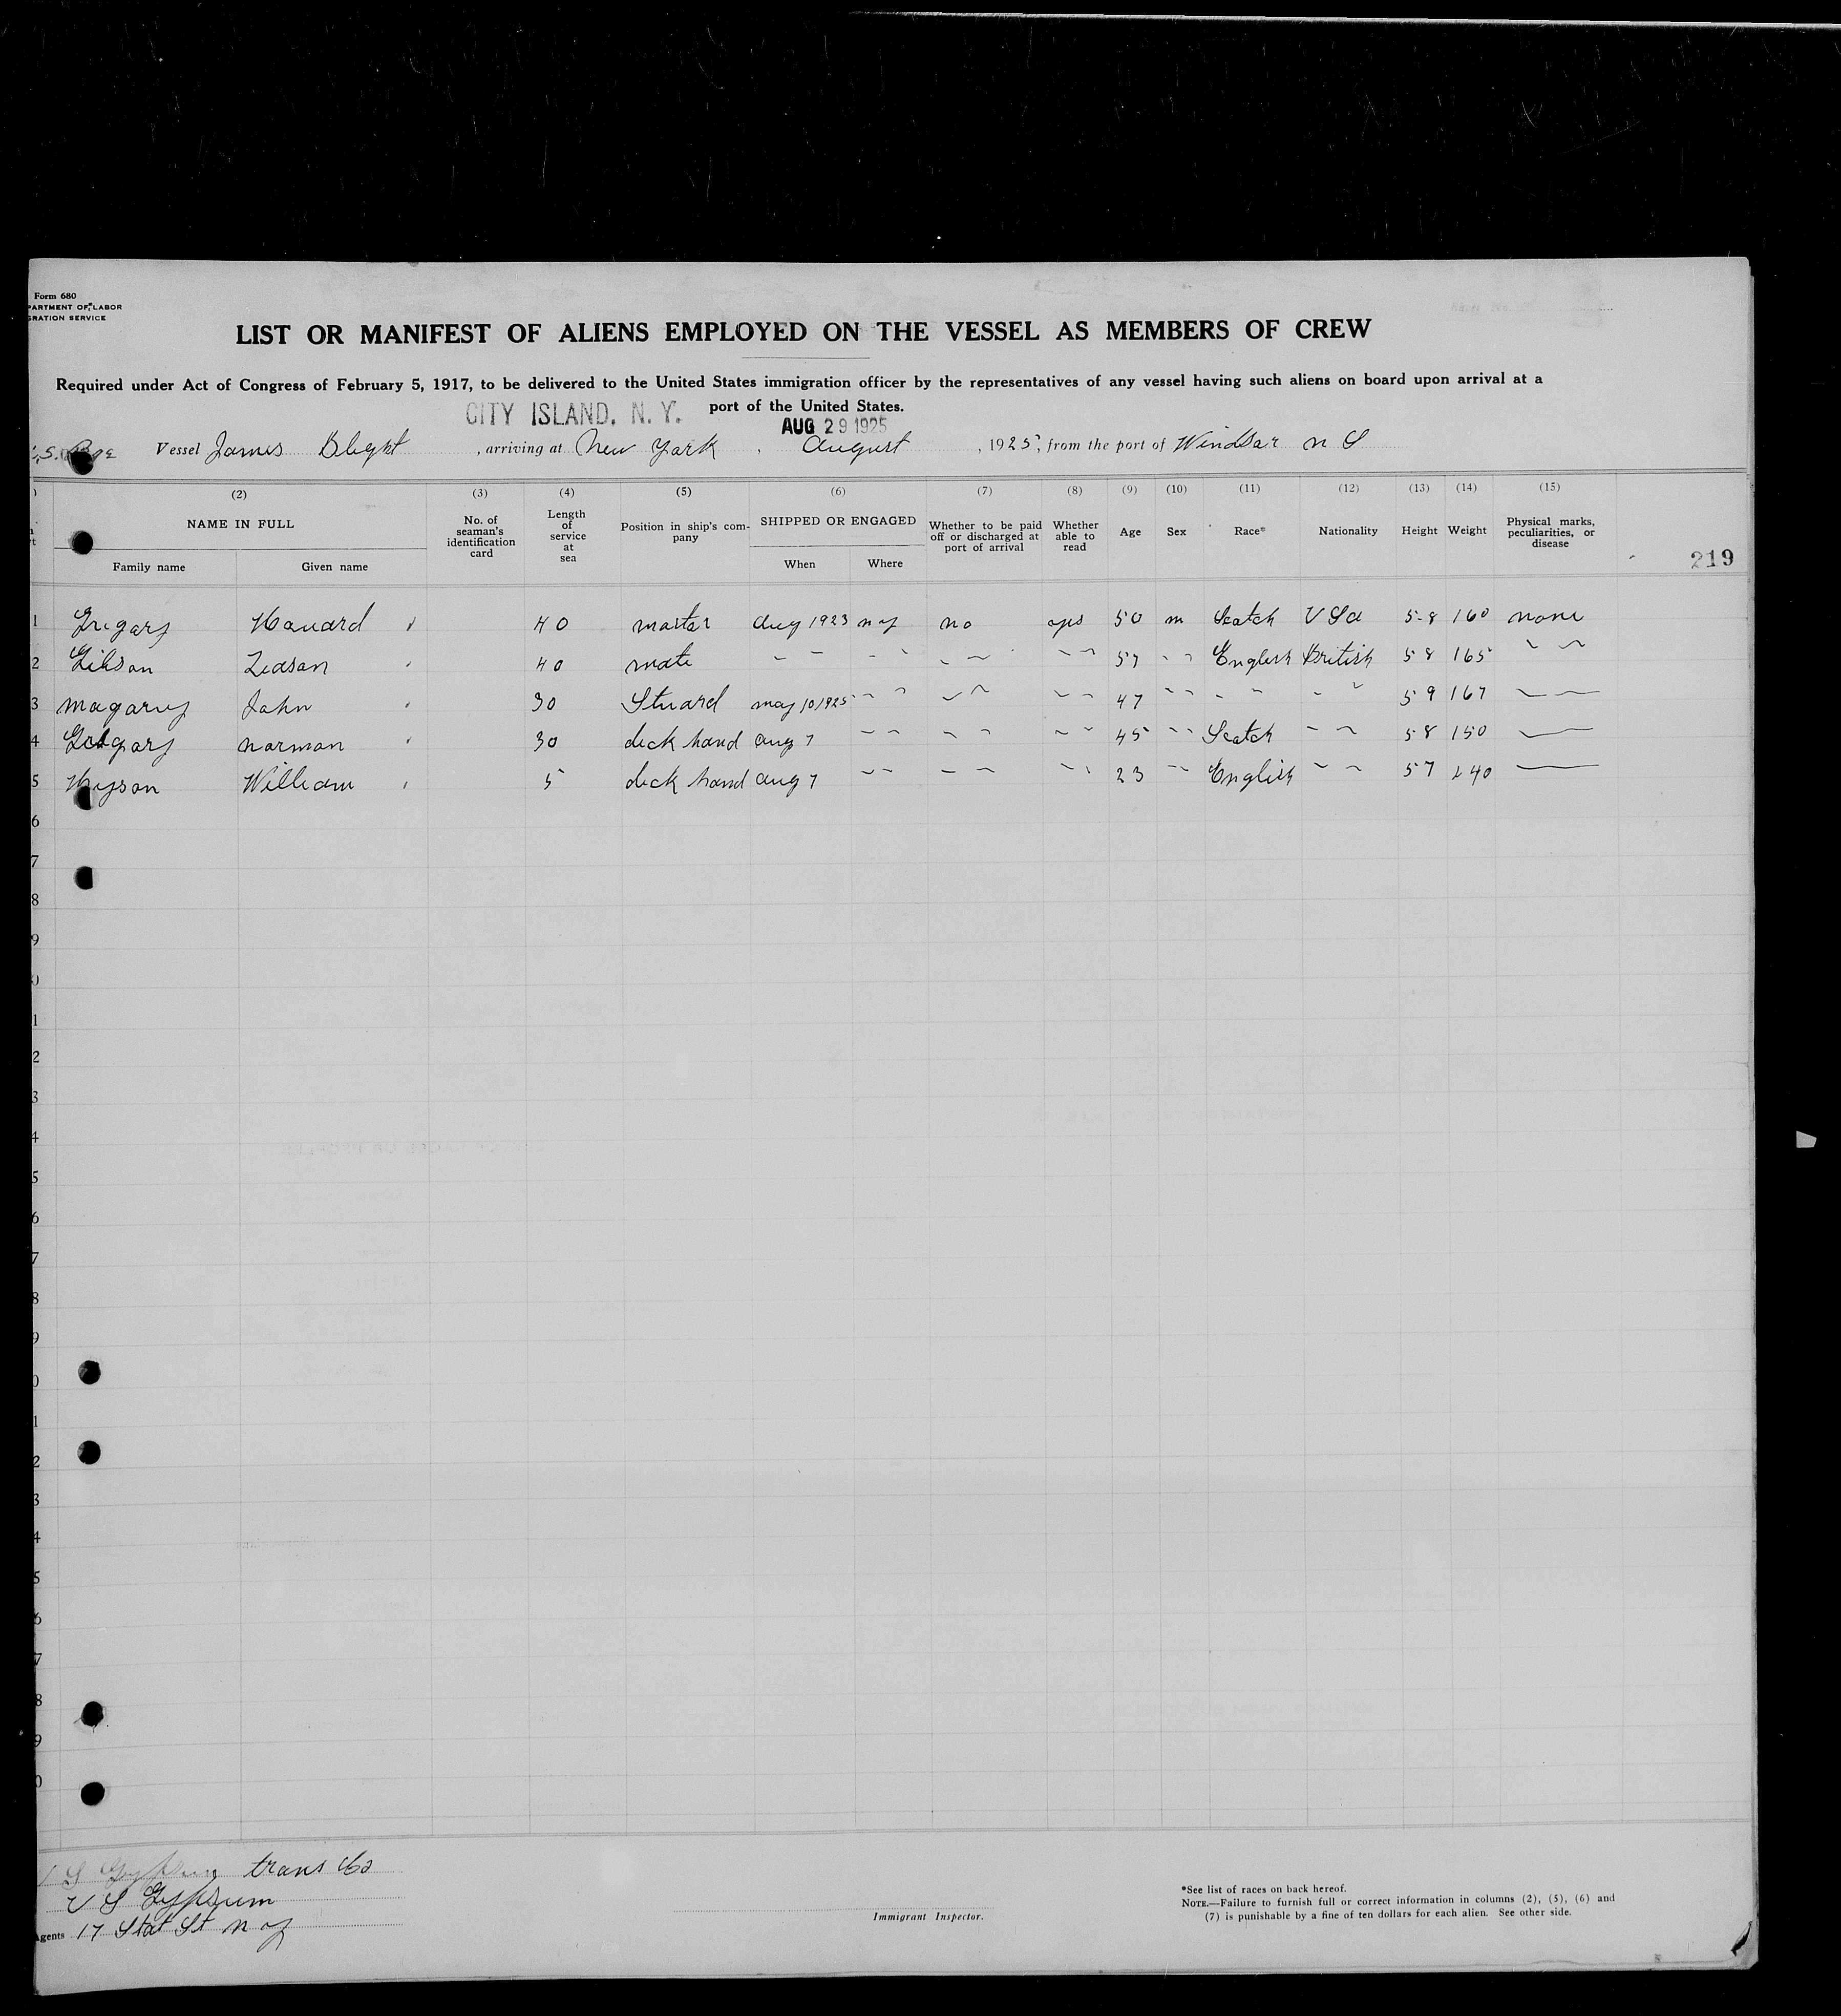 Form 680
PARTMENT OF LABOR
GRATION SERVICE
LIST OR MANIFEST OF ALIENS EMPLOYED ON THE VESSEL AS MEMBERS OF CREW
Required under Act of Congress of February 5, 1917, to be delivered to the United States immigration officer by the representatives of any vessel having such aliens on board upon arrival at a
port of the United States.
CITY ISLAND, N. Y.
AUG 29 1925
Vessel James Blight, arriving at New York, August, 1925, from the port of Windsor n S
(2) (3) (4) (5) (6) (7) (8) (9) (10) (11) (12) (13) (14) (15)
NAME IN FULL
Family name Given name
No. of seaman's identification card
Length of service at sea
Position in ship's company
SHIPPED OR ENGAGED
When Where
Whether to be paid off or discharged at port of arrival
Whether able to read
Age
Sex
Race*
Nationality
Height
Weight
Physical marks, peculiarities, or disease
219
1 Gregary Howard 40 master Aug 1923 n y no yes 50 m Scotch U S a 5-8 160 none
2 Gibson 40 mate " " " " " " " " 57 " " English British 5 8 165 " "
3 magarvy John 30 Stuard may 10 1925 " " " " " " 47 " " " " " " 5 9 167
4 norman 30 deck hand aug 7 " " " " " " 45 " " Scotch " " 5 8 150
5 William 5 deck hand aug 7 " " " " " " 23 " " English " " 5 7 140
6
7
8
9
0
1
2
3
4
5
6
7
8
9
0
1
2
3
4
5
6
7
8
9
0
U S Gypsum trans Co
U S Gypsum
Agents 17 Stat St n y
Immigrant Inspector.
*See list of races on back hereof.
NOTE.—Failure to furnish full or correct information in columns (2), (5), (6) and
(7) is punishable by a fine of ten dollars for each alien. See other side.